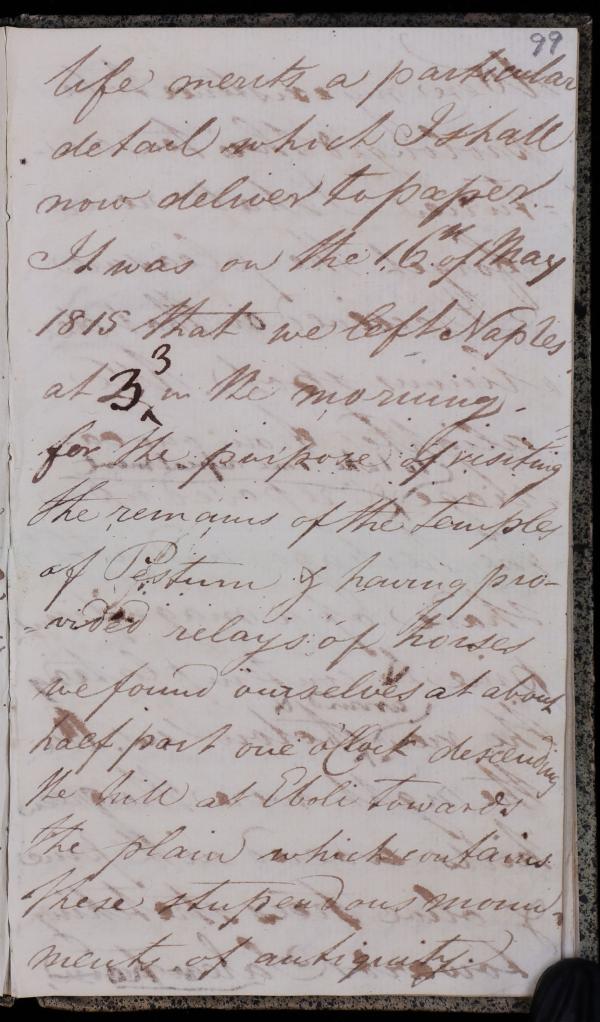 99
life merits a particular
detail which I shall
now deliver to paper.
It was on the 16th of May
1815 that we left Naples
at 3 3 in the morning.
for the purpose of visiting
the remains of the temples
of Pestum & having pro-
-vided relays of horses
we found ourselves at about
half past one o'Clock descending
the hill at Eboli towards
the plain which contains
these stupendous monu-
ments of antiquity.